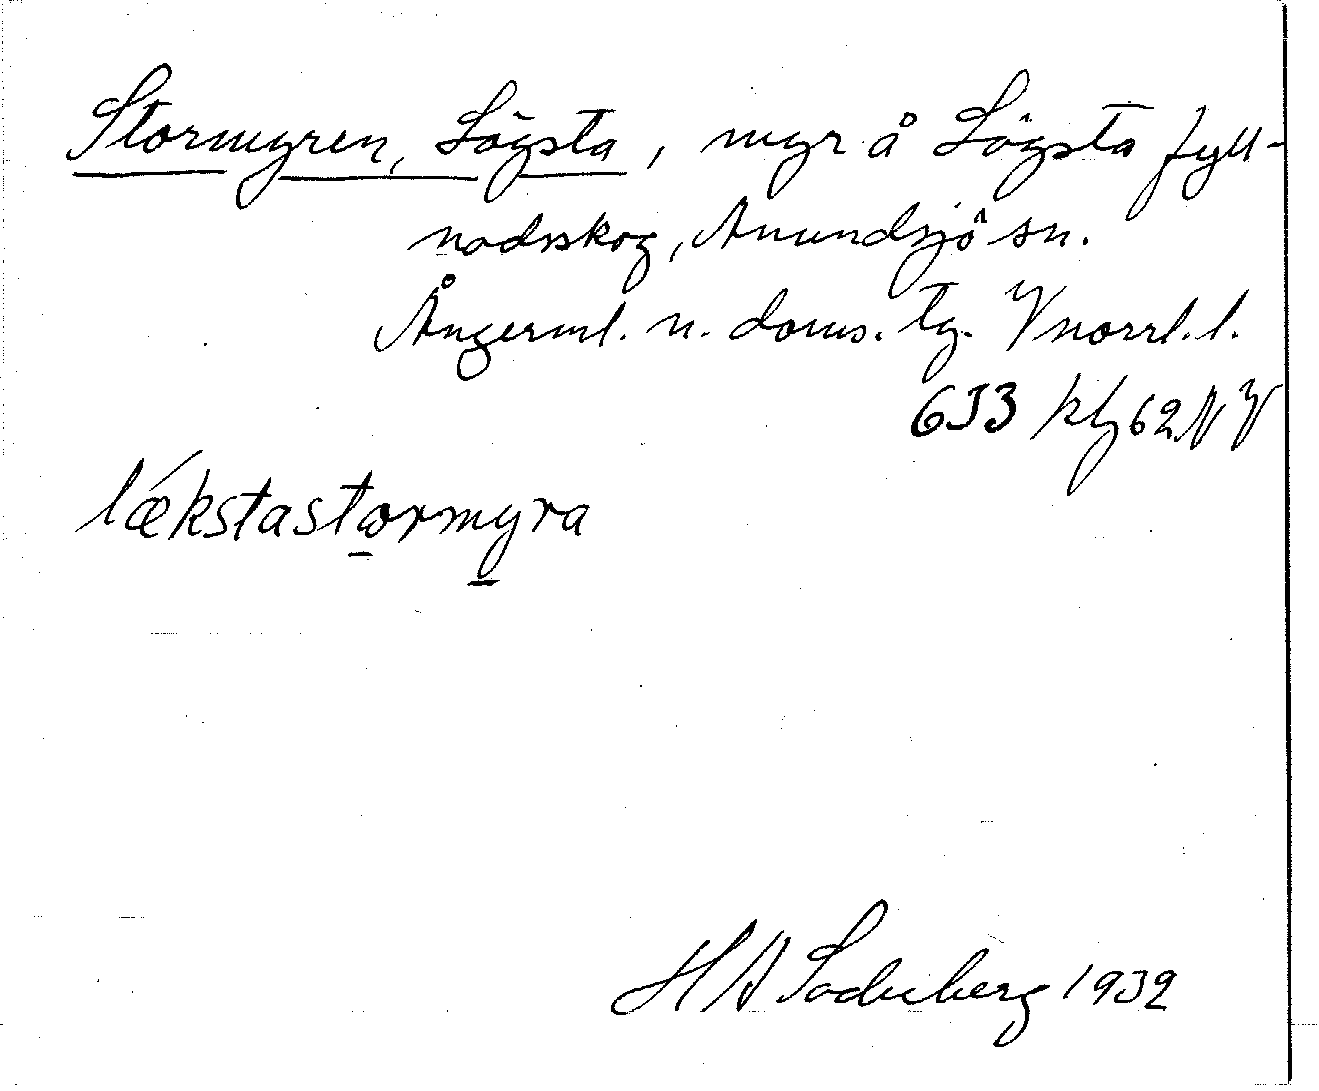 Stormyren, Lögsta, myr å Lögsta fyll-
nadsskog, Anundsjö sn.
Ångerml. n. doms. tg. Vnorrl. l.
633 kf 62 NV
lækstastormyra
H A Söderberg 1932